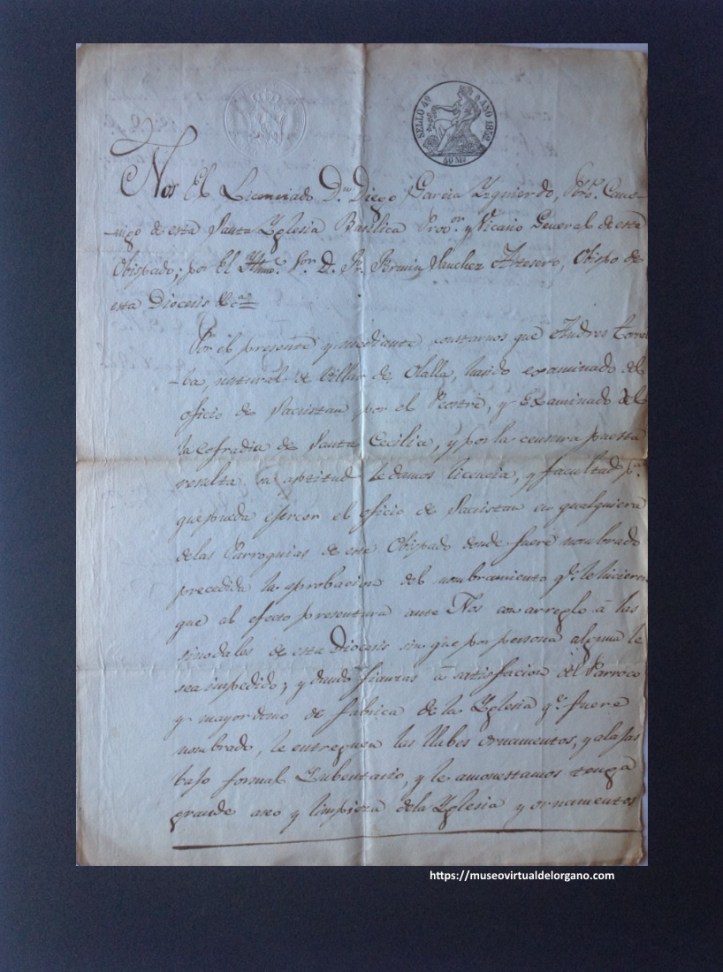 SELLO 4º AÑO 1852
40 MS
Nos El Licenciado Dn Diego Garcia Yzquierdo, Pbro. Cano-
nigo de esta Santa Yglesia Basilica Provor. y Vicario General de este
Obispado; por El Yllmo. Sor. D. Fr. Fermin Sanchez Artesero, Obispo de
esta Diocesis &ca
Por el presente y mediante constarnos que Andres Torral-
ba, natural de Villar de Olalla, ha sido examinado del
oficio de Sacristan por el Rector, y Examinador de
la Cofradia de Santa Cecilia, y por la censura puesta
resulta su aptitud le damos licencia, y facultad pa.
que pueda ejercer el oficio de Sacristan en qualquiera
de las Parroquias de este Obispado donde fuere nombrado
precedida la aprobacion del nombramiento qe. le hicieren
que al efecto presentara ante Nos con arreglo â las
sinodales de esta Diocesis sin que por persona alguna le
sea impedido; y dando fianzas â satisfacion del Parroco
y mayordomo de fabrica de la Yglesia qe. fuere
nombrado, le entreguen las llabes ornamentos, y alajas
bajo formal Ynbentario, y le amonestamos tenga
grande aseo y limpieza de la Yglesia y ornamentos
https://museovirtualdelorgano.com